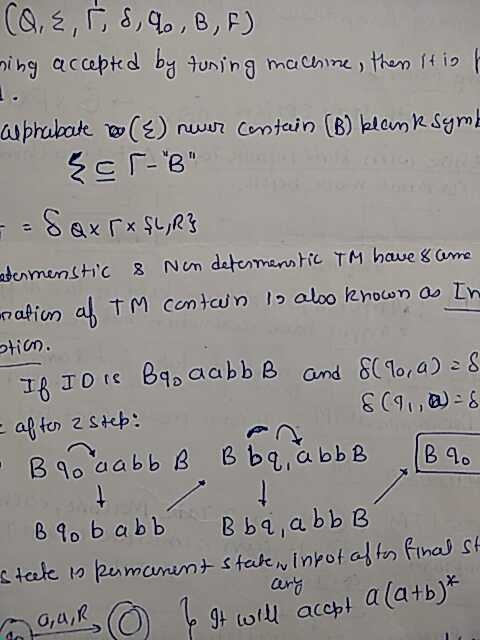 (Q, Σ, Γ, δ, q₀, B, F)
ning accepted by turing machine, then it is
alphabate (Σ) never contain (B) blank symb
Σ ⊆ Γ - "B"
= δ Q × Γ × {L,R}
determenstic & Non determenstic TM have same
mation of TM contain is also known as In
ption.
If ID is Bq₀ aabb B and δ(q₀, a) = δ
δ(q₁, a) = δ
after 2 step:
B q₀ aabb B B b q₁ abb B B q₀
↓ ↓
B q₀ b abb B b q₁ abb B
state is permanent state, any input after final st
a,a,R } It will accept a(a+b)*